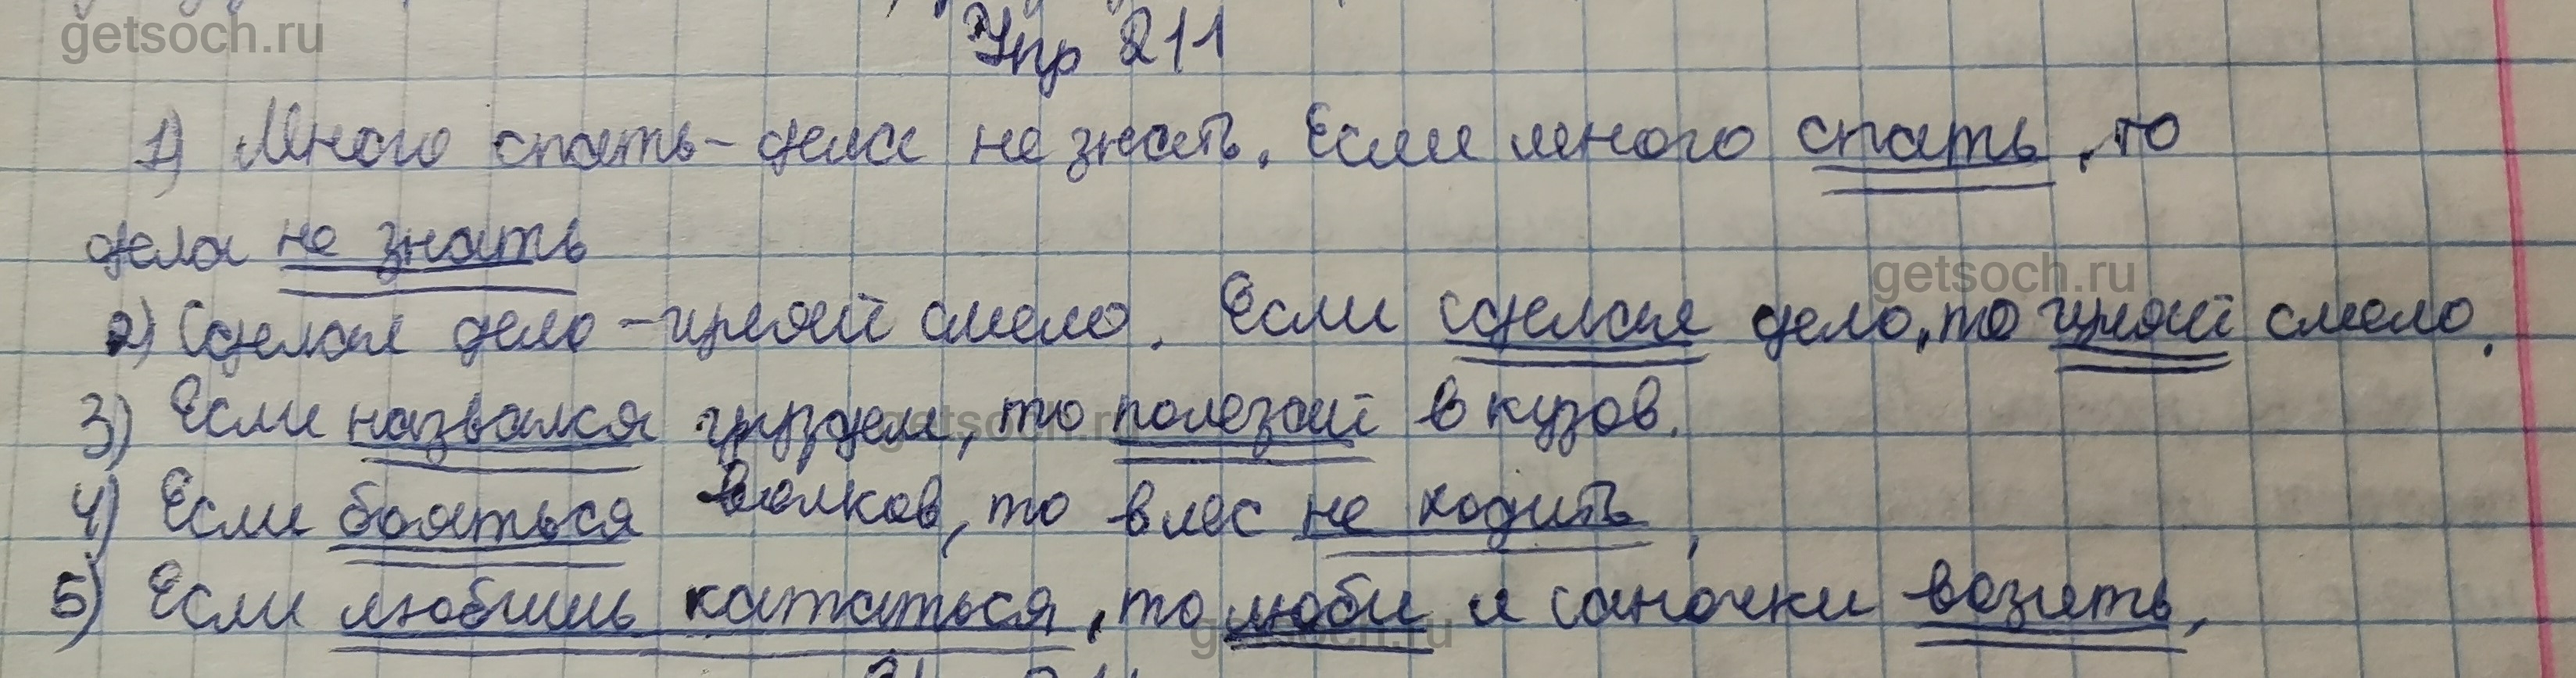 getsoch.ru
Упр 211
1) Много спать - дела не знать. Если много спать, то
дела не знать
getsoch.ru
2) Сделал дело - гуляй смело. Если сделал дело, то гуляй смело.
3) Если назвался груздем, то полезай в кузов.
getsoch.ru
4) Если бояться волков, то в лес не ходить.
5) Если любишь кататься, то люби и саночки возить,
getsoch.ru